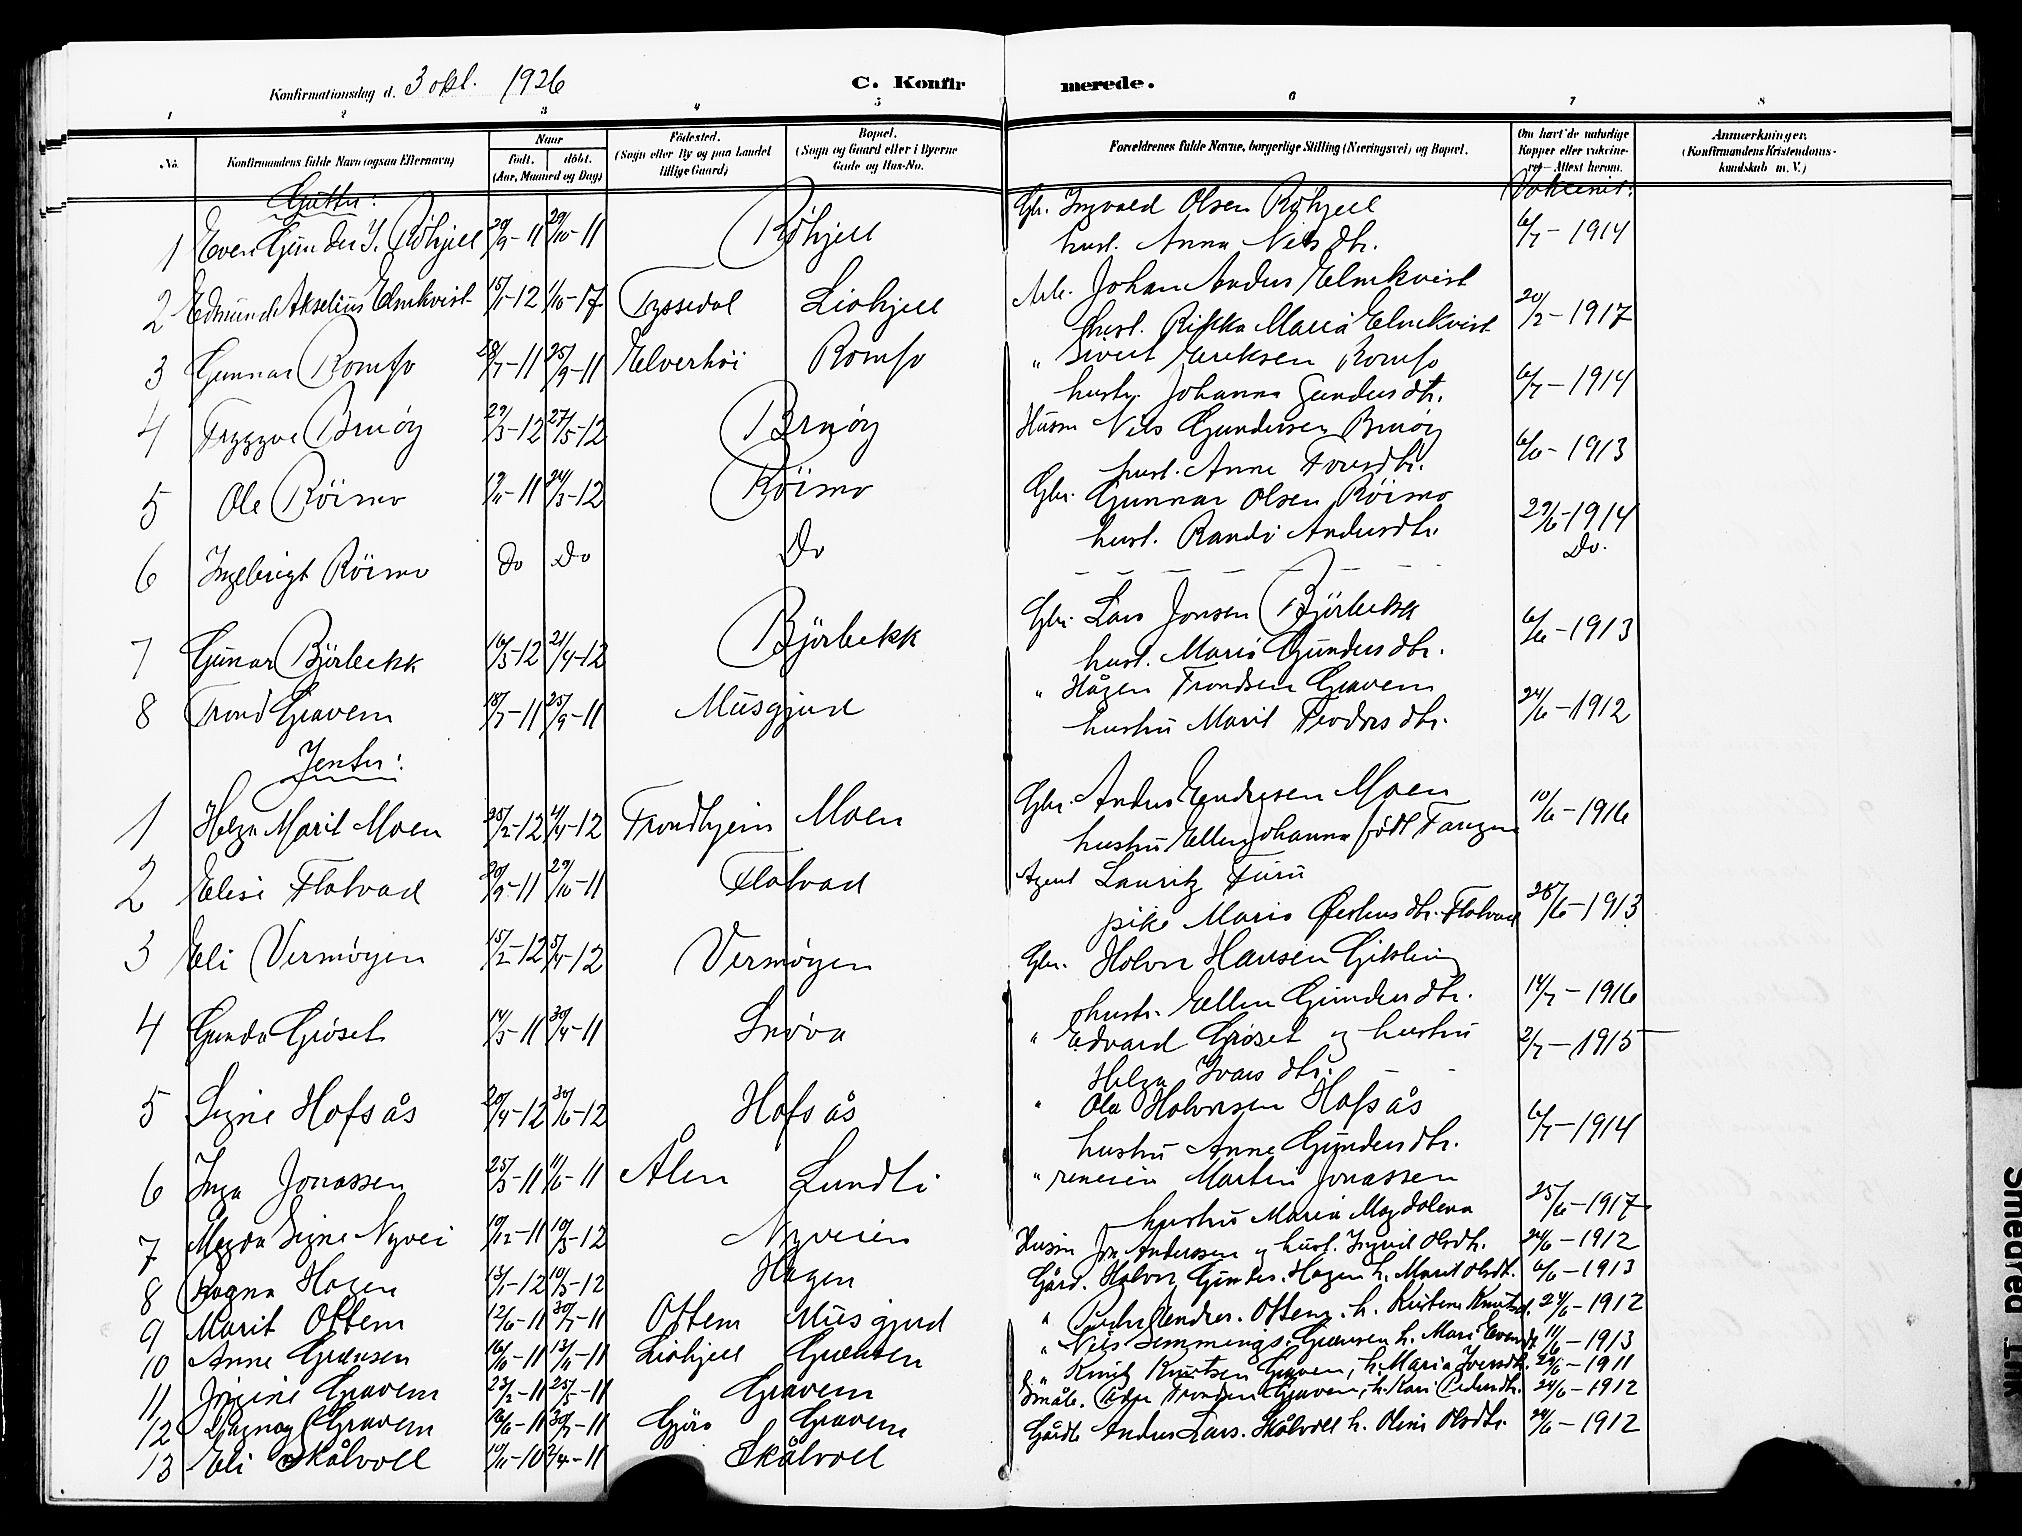 Konfirmationsdag d. 3 okt. 1926
C. Konfir merede.
1 2 3 4 5 6 7 8
No.
Konfirmandens fulde Navn (ogsaa Efternavn)
Naar
født. døbt.
(Aar, Maaned og Dag)
Fødested.
(Sogn eller By og paa Landet tillige Gaard)
Bopæl.
(Sogn og Gaard eller i Byerne Gade og Hus-No.
Forældrenes fulde Navne, borgerlige Stilling (Næringsvei) og Bopæl.
Om havt de naturlige Kopper eller vaksineret — Attest herom.
Anmærkninger.
(Konfirmandens Kristendomskundskab m. V.)
Gutter:
1 Even Gunder I. Röhjell 20/9-11 29/10-11 Röhjell Gbr. Ingvald Olsen Röhjell
hust. Anna Nilsdtr. 6/7-1914
2 Edmund Akselius Elmkvist 15/1-12 1/10-17 Tyssedal Liohjell Arb. Johan Anders Elmkvist
hust. Rikka Maria Elmkvist 20/2-1917
3 Gunnar Romfo 28/7-11 25/9-11 Elverhöi Romfo " Sivert Eriksen Romfo
hustr. Johanna Gundersdtr. 6/7-1914
4 Tryggve Bruøy 29/3-12 27/5-12 Bruøy Husm Nils Gundersen Bruøy
hust. Anne Toresdtr. 6/6-1913
5 Ole Röimo 19/11-11 24/3-12 Röimo Gbr. Gunnar Olsen Röimo
hust. Randi Andersdtr. 29/6-1914
6 Ingebrigt Röimo Do Do Do Do.
7 Gunar Björbekk 16/3-12 21/4-12 Björbekk Gbr. Lars Jonsen Björbekk
hust. Mari Gundersdtr. 6/6-1913
8 Trond Gravem 18/7-11 25/9-11 Musgjerd " Hågen Trondsen Gravem
hustru Marit 24/6-1912
Jenter:
1 Helga Marit Moen 25/2-12 4/4-12 Trondhjem Moen Gbr. Anders Endresen Moen
hustru Ellen Johanna født Tangen 10/6-1916
2 Elisi Flatvad 20/9-11 29/10-11 Flatvad Agent Lauritz Furu
pike Mari Flatvad 28/6-1913
3 Eli Vermøyen 15/2-12 5/4-12 Vermøyen Gbr. Holvor Hansen Gikling
hustr. Ellen Gundersdtr. 14/7-1916
4 Gunda Grøset 14/3-11 30/4-11 Snøva " Edvard Grøset og hustru
Helga Ivarsdtr. 2/7-1915
5 Signe Hofsås 20/4-12 30/6-12 Hofsås " Ola Holvorsen Hofsås
hustru Anne Gundersdtr. 6/7-1914
6 Inga Jonassen 25/3-11 11/6-11 Ålen Lundli " Martin Jonassen
hustru Maria Magdalena 25/6-1917
7 Magda Signe Nyvei 19/12-11 10/3-12 Nyveien Husm Jon Anderssen og hust. Ingrid Olsdtr. 24/6-1912
8 Ragna Hagen 13/1-12 10/3-12 Hagen Gård. Holvor Gunders. Hagen h. Marit Olsdt. 6/6-1913
9 Marit Ottem 12/6-11 30/7-11 Ottem Musgjerd " Peder Endres. Ottem, h. Kirsten Knutsd. 24/6-1912
10 Anne Grønsen 16/8-11 13/9-11 Liohjell Grønsen " Nils Hemmings. Grønsen h. Mari Evensdt. 11/6-1913
11 Jørgine Gravem 23/2-11 25/5-11 Gravem " Knut Knutsen Gravem, h. Maria Iversdt. 29/6-1911
12 Ragna Gravem 16/6-11 30/7-11 Gjöra Gravem Trondsen Gravem, h. Kari Pedersdtr. 24/6-1912
13 Eli Skålvoll 19/11-10 2/4-11 Skålvoll Gårdb Anders Lars. Skålvoll h. Olini Olsdtr. 24/6-1912
Vaksinert: